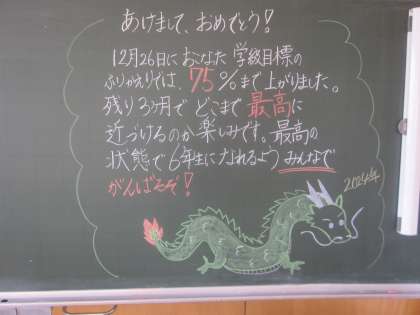 あけまして、おめでとう！
12月26日におこなった学級目標の
ふりかえりでは、75％まで上がりました。
残り3ヶ月でどこまで最高に
近づけるのか楽しみです。最高の
状態で6年生になれるようみんなで
がんばるぞ！
2024年